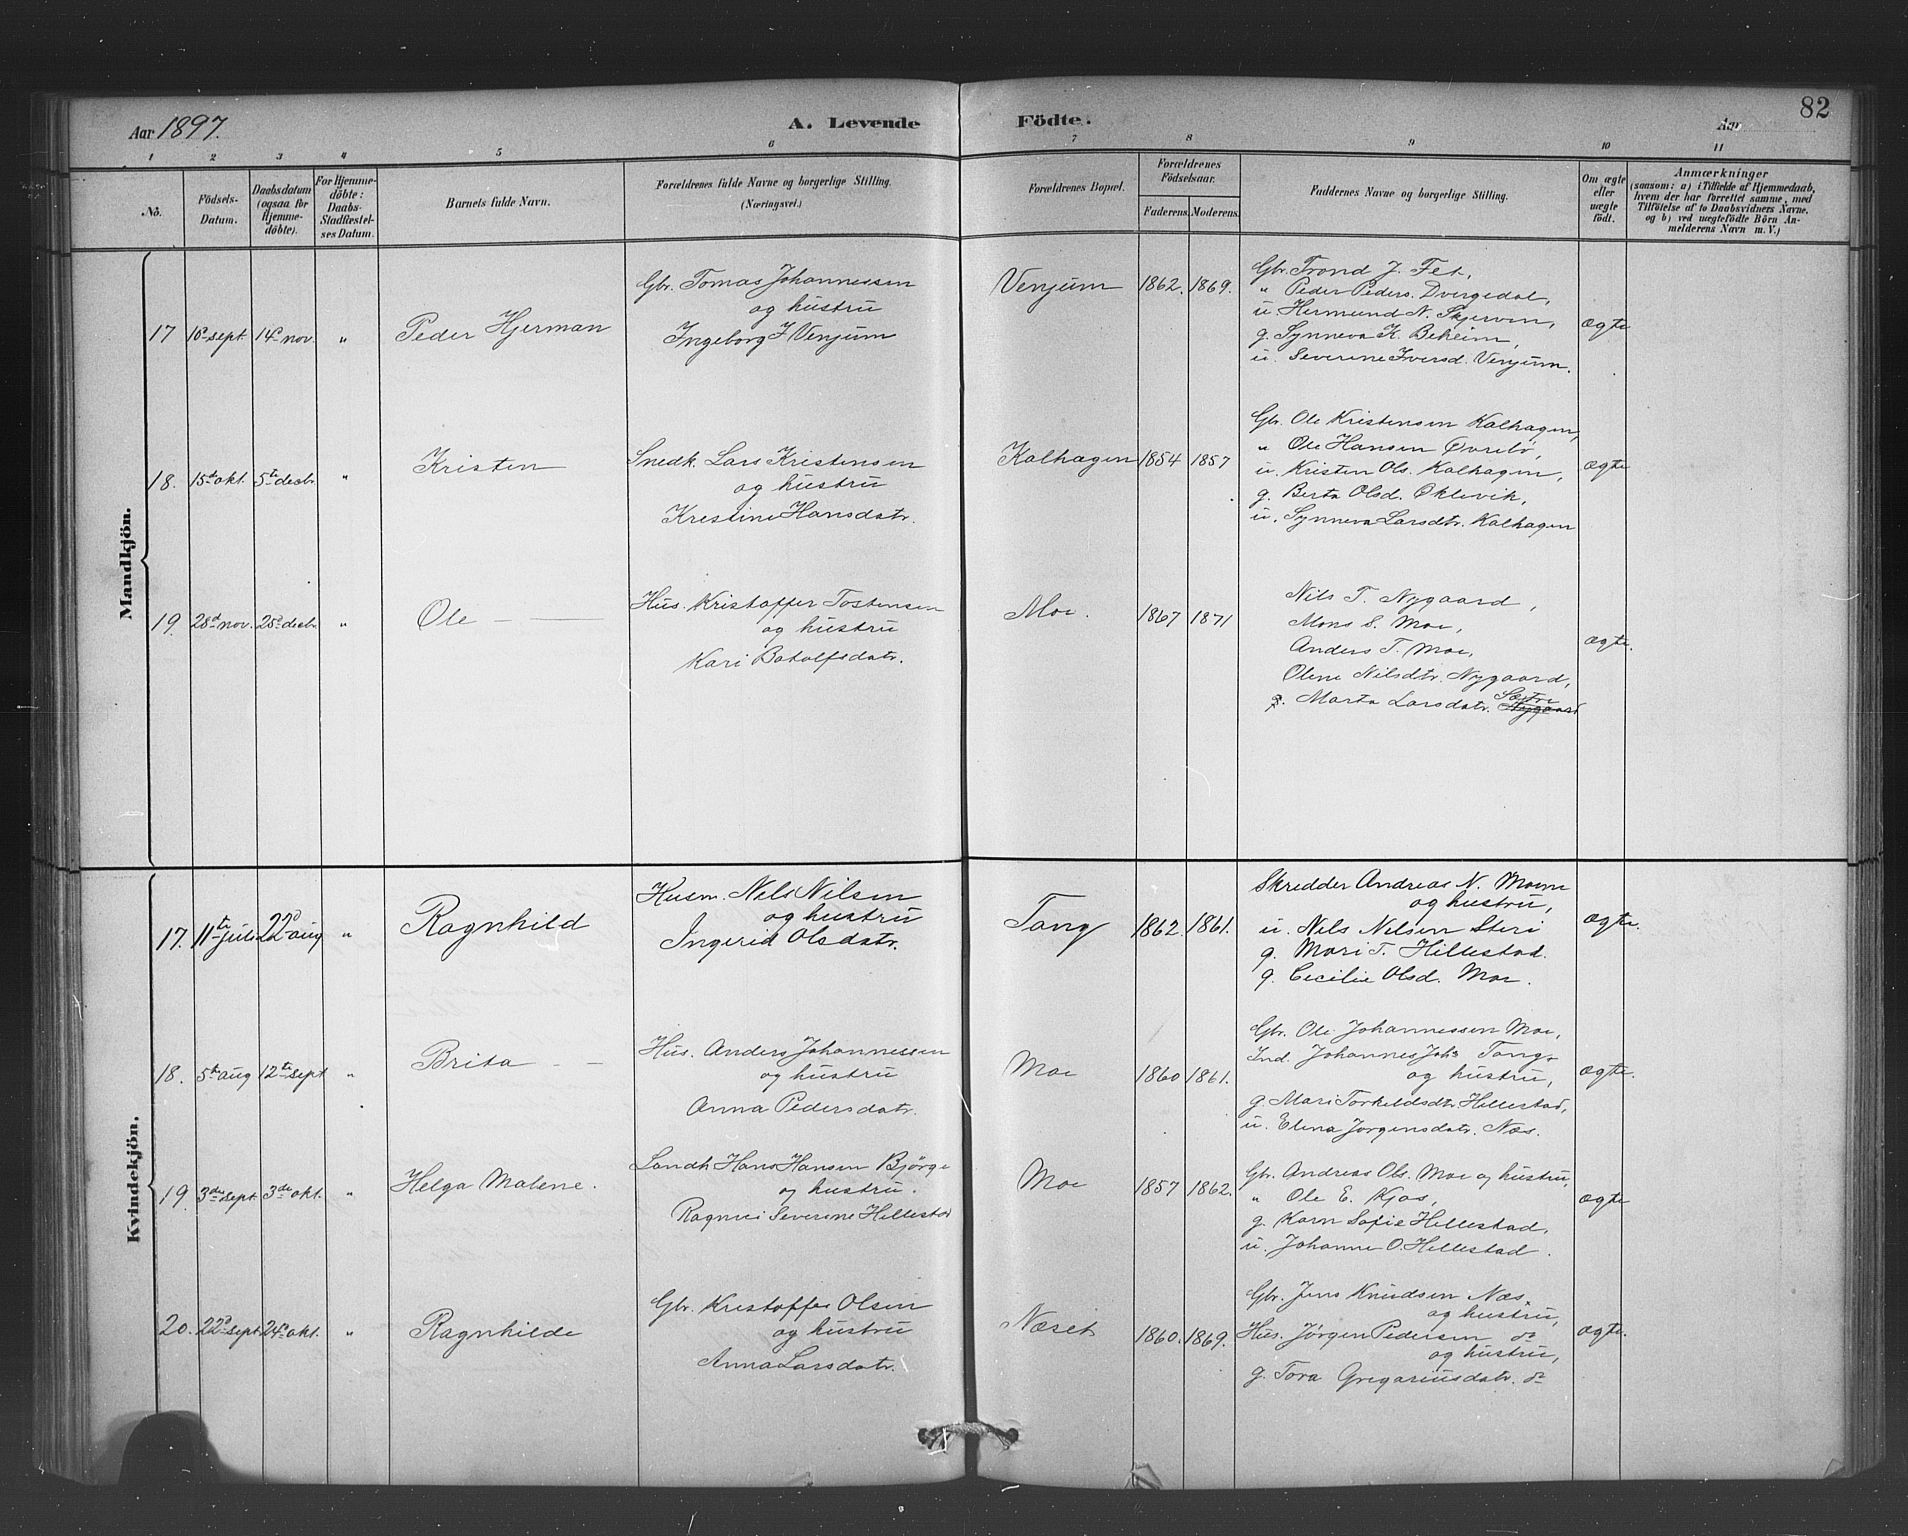 Aar 1897.
A. Levende Födte.
Aar
82
1 2 3 4 5 6 7 8 9 10 11
No.
Födsels-Datum.
Daabsdatum (ogsaa for Hjemme-döbte).
For Hjemme-döbte: Daabs-Stadfæstel-ses Datum.
Barnets fulde Navn.
Forældrenes fulde Navne og borgerlige Stilling.
(Næringsvei.)
Forældrenes Bopæl.
Forældrenes Födselsaar.
Faderens. Moderens.
Faddernes Navne og borgerlige Stilling.
Om ægte eller uægte födt.
Anmærkninger
(saasom: a) i Tilfælde af Hjemmedaab,
hvem der har forrettet samme, med
Tilföielse af to Daabsvidners Navne,
og b) ved uægtefödte Börn An-
melderens Navn m. V.)
Mandkjön.
17 10de sept 14de nov. " Peder Hjerman
Gbr. Tomas Johannessen
og hustru
Ingeborg J Venjum
Venjum 1862. 1869.
Gbr. Trond J. Fet,
" Peder Peders. Dvergedal,
u Hermund N. Skjerven,
g. Synneva K. Beheim,
u. Severine Iversd. Venjum.
ægte
18. 15de okt. 5te decbr. " Kristen
Snedk. Lars Kristensen
og hustru
Kristine Hansdatr.
Kalhagen 1854 1857
Gbr. Ole Kristensen Kalhagen,
" Ole Hansen Øvrebø,
u. Kristen Ols. Kalhagen,
g. Berta Olsd. Oklevik,
u. Synneva Larsdtr. Kalhagen
ægte
19. 28de nov. 25de decbr. " Ole
Hus. Kristoffer Tostensen
og hustru
Kari Botolfsdatr.
Moe. 1867 1871
Nils T. Nygaard,
Mons S. Moe,
Anders T. Moe,
Olene Nilsdtr. Nygaard,
g. Marta Larsdatr. Sætre Nygaard
ægte.
Kvindekjön.
17. 11te juli 22de aug " Ragnhild
Husm. Nils Nilsen
og hustru
Ingerid Olsdatr.
Tang 1862. 1861.
Skredder Andreas N. Moene
og hustru,
u. Nils Nilsen Steri
g. Mari T. Hillestad.
g. Cecilie Olsd. Moe.
ægte.
18. 5te aug 12te sept " Brita
Hus. Anders Johannessen
og hustru
Anna Pedersdatr.
Moe 1860 1861.
Gbr. Ole Johannessen Moe,
Ind. Johannes Johs Tang
og hustru,
g. Mari Torkeldsdtr. Hillestad,
u. Elina Jorgensdatr. Næs.
ægte.
19. 3die sept 3die okt. " Helga Malene.
Landh. Hans Hansen Bjørge
og hustru.
Severine Hillestad
Moe 1857 1862.
Gbr. Andreas Ols. Moe og hustru,
" Ole E. Kjos,
g. Karn Sofie Hillestad,
u. Johanne O. Hillestad.
ægte
20. 22de sept 24de okt. " Ragnhilde
Gbr. Kristoffer Olsen
og hustru
Anna Larsdatr.
Næset 1860. 1869.
Gbr. Jens Knudsen Næs,
og hustru,
Hus. Jørgen Pedersen do
og hustru,
g. Tora Gregoriusdatr. do
ægte.